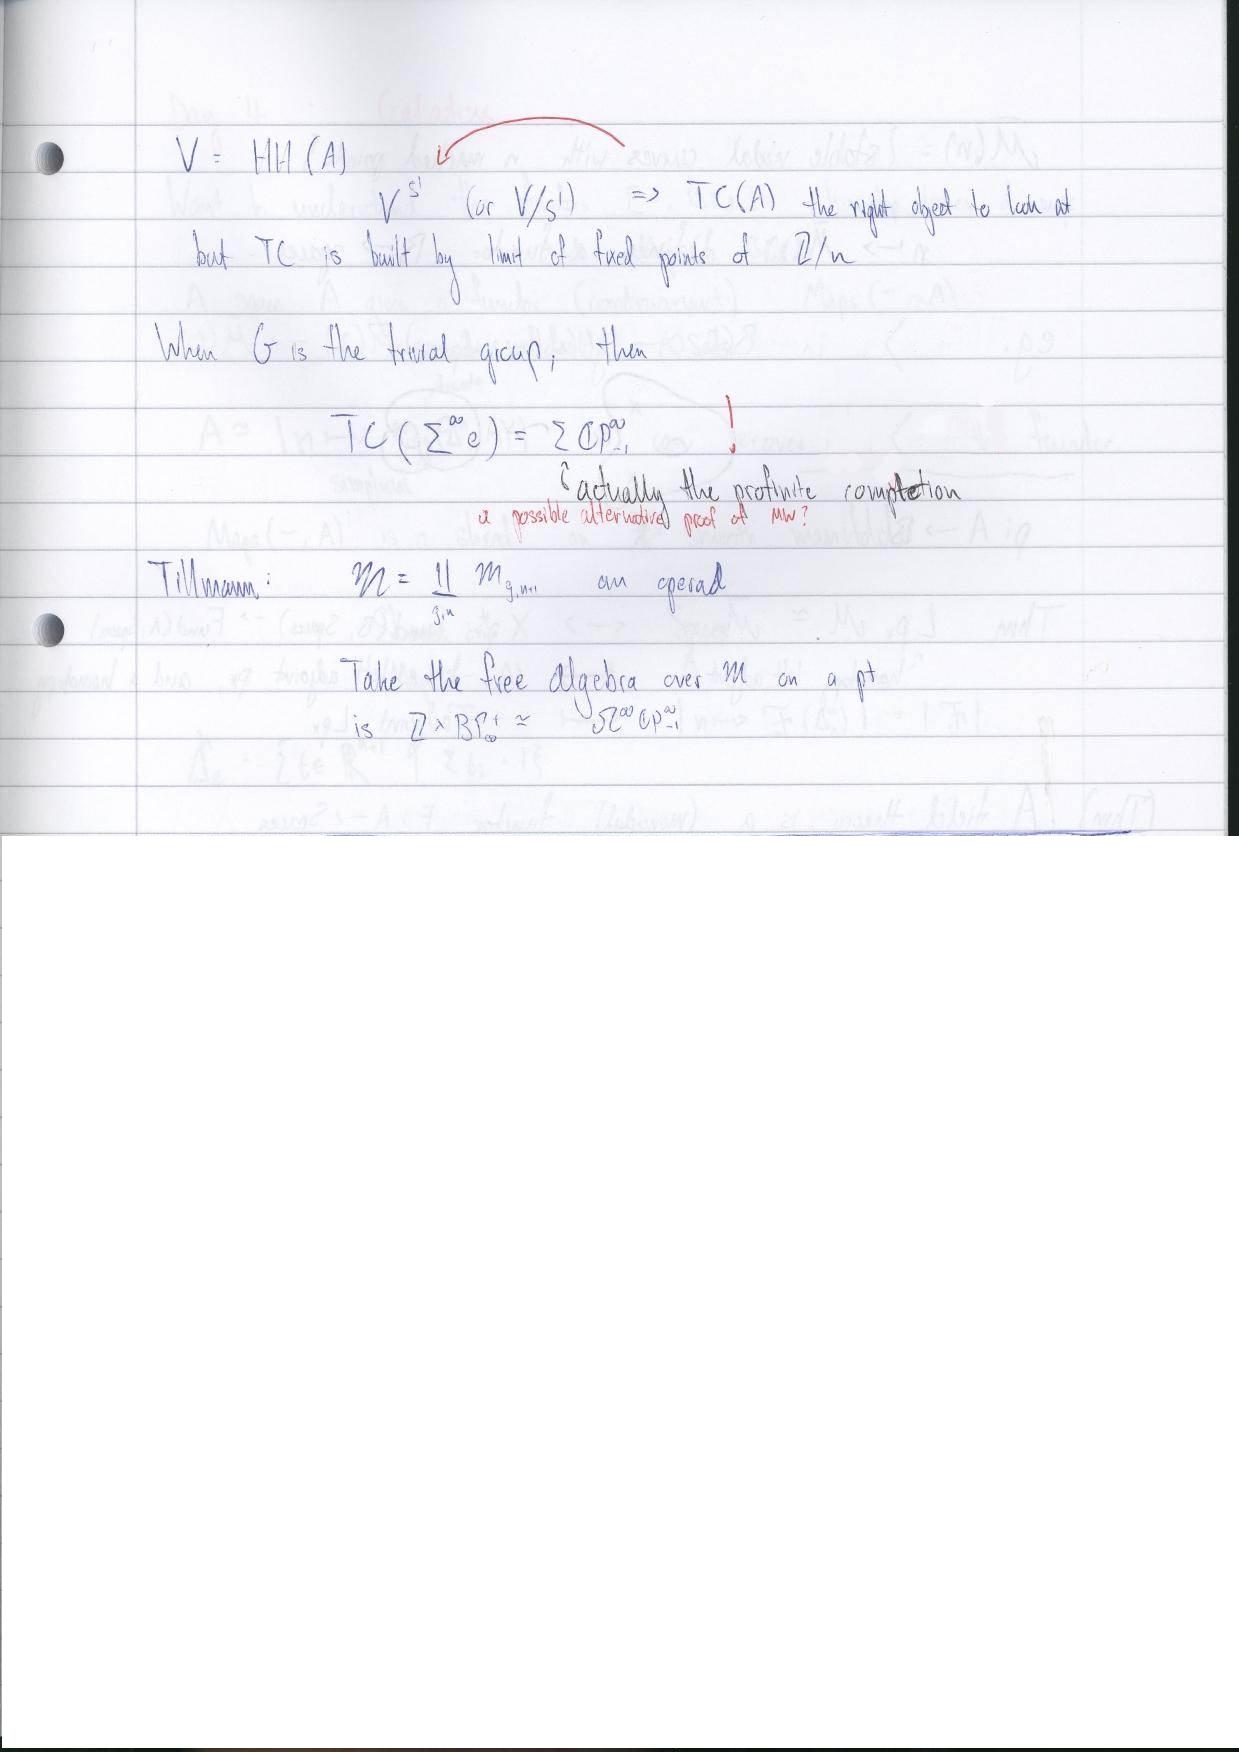 V = HH(A)
V^{S¹} (or V/S¹) => TC(A) the right object to look at
but TC is built by limit of fixed points of ℤ/n
When G is the trivial group, then
TC(Σ^∞ e) = Σ ℂP^∞_{-1} !
↑ actually the profinite completion
a possible alternative proof of MW?
Tillmann: M = ∐_{g,n} M_{g,n+1} an operad
Take the free algebra over M on a pt
is ℤ × BΓ^+_∞ ≃ Ω^∞ ℂP^∞_{-1}